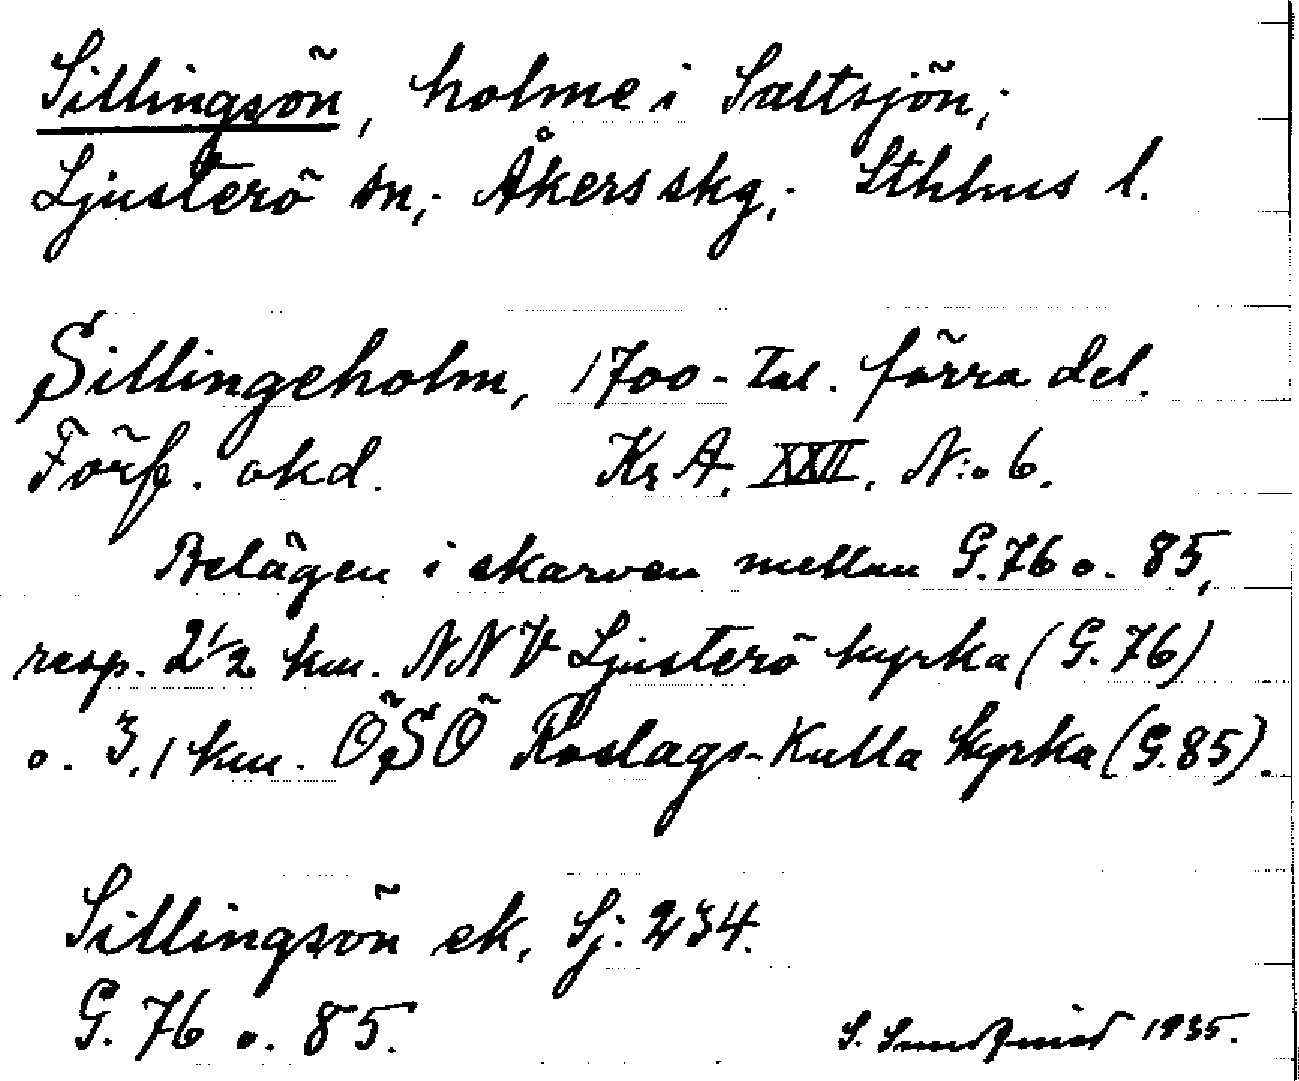 Sillingsön, holme i Saltsjön,;
Ljusterö sn,; Åkers skg,; Sthlms l.
Sillingeholm, 1700-Tal. förra del.
Förf. okd. Kr A. XXII. N:o 6.
Belägen i skarven mellan G.76 o. 85,
resp. 2 1/2 km. NNV Ljusterö kyrka (G.76)
o. 3,1 km. ÖSÖ Roslags-Kulla kyrka (G.85).
Sillingsön ek. Sj. 234.
G. 76 o. 85.
S. 1935.